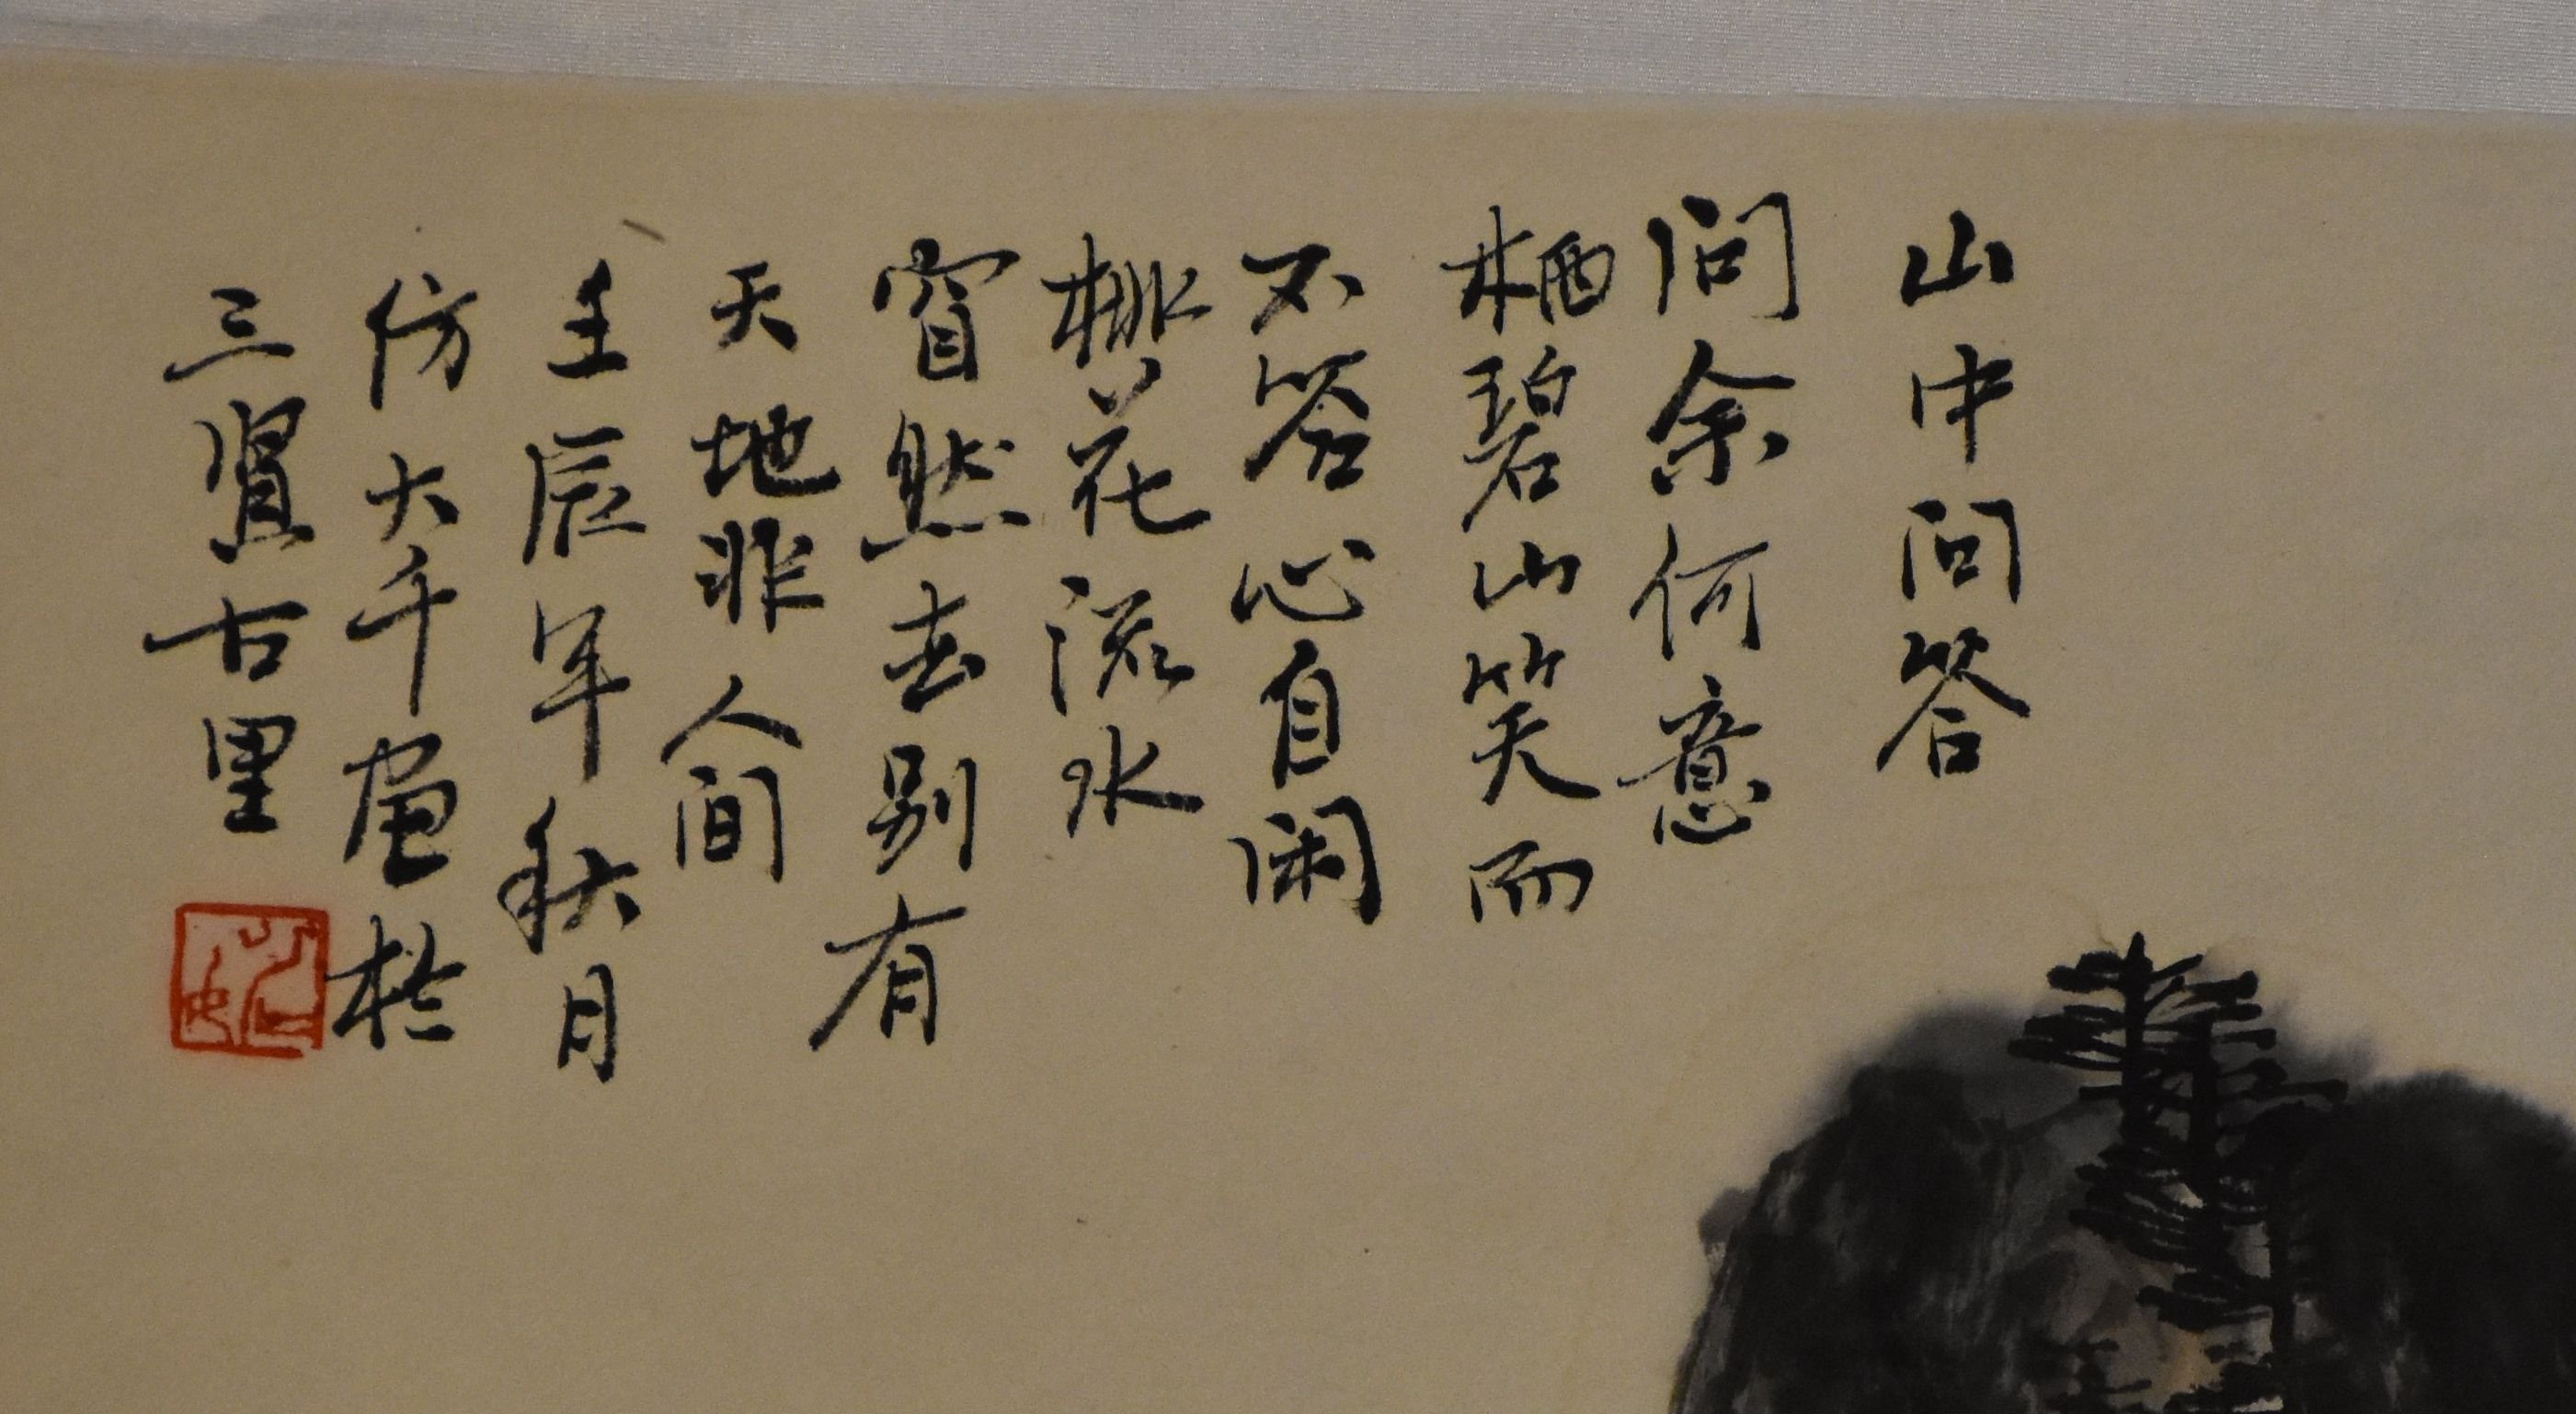 山中问答
问余何意
栖碧山笑而
不答心自闲
桃花流水
窅然去别有
天地非人间
壬辰年秋月
仿大千画於
三贤古里